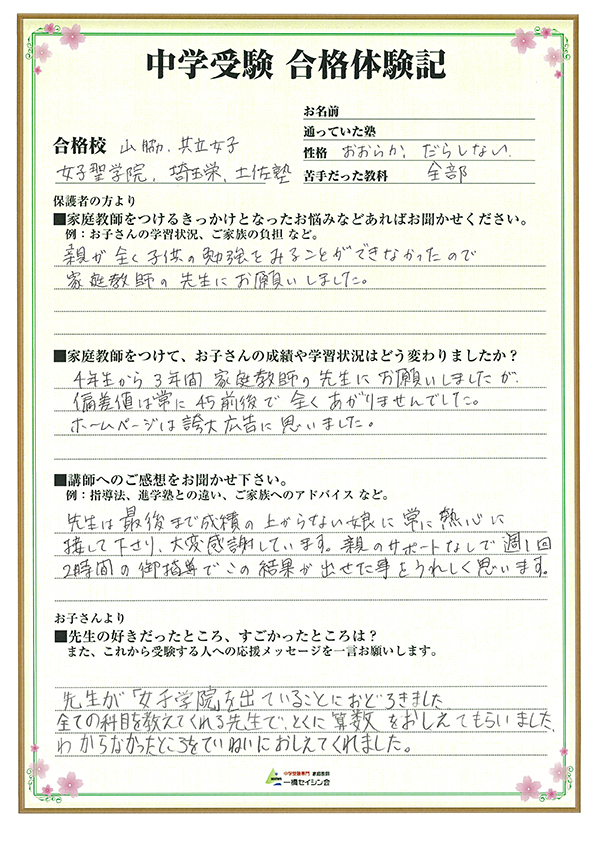 中学受験 合格体験記
お名前
通っていた塾
合格校 山脇、共立女子
性格 おおらか、だらしない
女子聖学院、埼玉栄、土佐塾
苦手だった教科 全部
保護者の方より
■家庭教師をつけるきっかけとなったお悩みなどあればお聞かせください。
例：お子さんの学習状況、ご家族の負担 など。
親が全く子供の勉強をみることができなかったので
家庭教師の先生にお願いしました。
■家庭教師をつけて、お子さんの成績や学習状況はどう変わりましたか？
4年生から3年間家庭教師の先生にお願いしましたが、
偏差値は常に45前後で全くあがりませんでした。
ホームページは誇大広告に思いました。
■講師へのご感想をお聞かせ下さい。
例：指導法、進学塾との違い、ご家族へのアドバイス など。
先生は最後まで成績の上がらない娘に常に熱心に
接して下さり、大変感謝しています。親のサポートなしで週1回
2時間の御指導でこの結果が出せた事をうれしく思います。
お子さんより
■先生の好きだったところ、すごかったところは？
また、これから受験する人への応援メッセージを一言お願いします。
先生が「女子学院」を出ていることにおどろきました
全ての科目を教えてくれる先生で、とくに算数をおしえてもらいました。
わからなかったところをていねいにおしえてくれました。
中学受験専門 家庭教師
一橋セイシン会